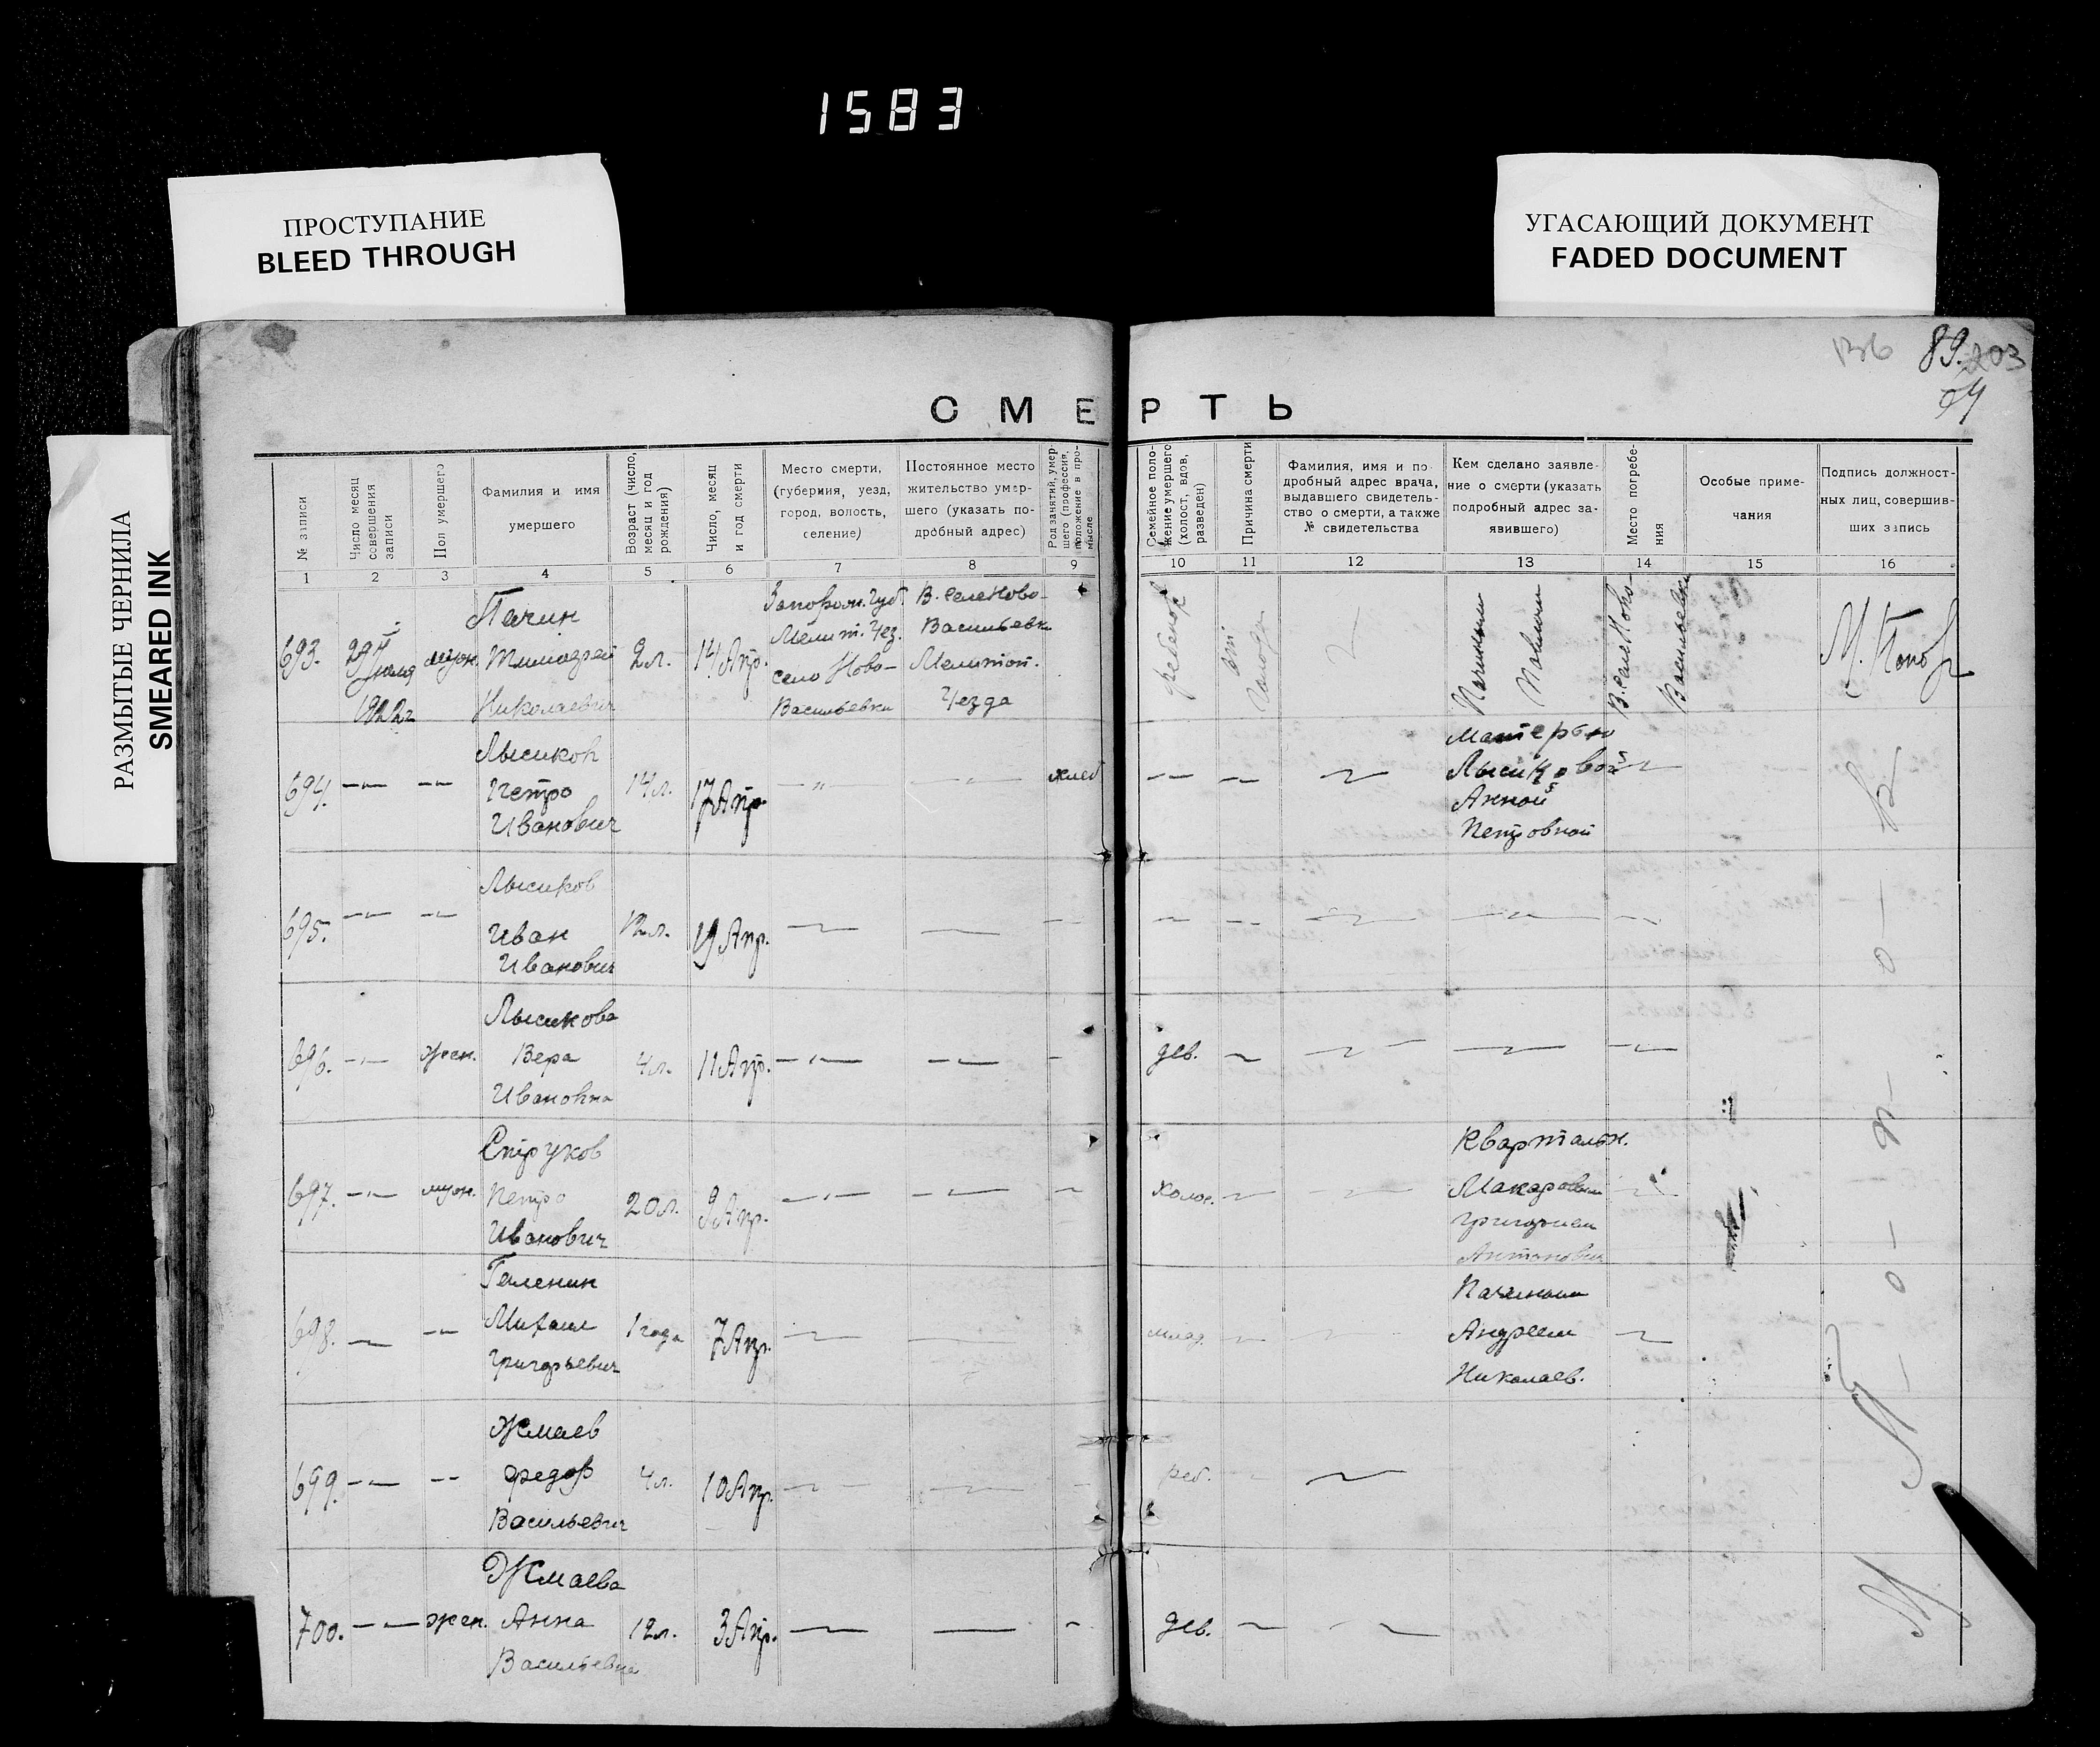 1583
ПРОСТУПАНИЕ
BLEED THROUGH
УГАСАЮЩИЙ ДОКУМЕНТ
FADED DOCUMENT
РАЗМЫТЫЕ ЧЕРНИЛА
SMEARED INK
89.
203
64
СМЕРТЬ
№ записи
Число месяц
совершения
записи
Пол умершего
Фамилия и имя
умершего
Возраст (число,
месяц и год
рождения)
Число, месяц
и год смерти
Место смерти,
(губерния, уезд,
город, волость,
селение)
Постоянное место
жительство умер-
шего (указать по-
дробный адрес)
Род занятий, умер-
шего (профессия,
положение в про-
мысле
Семейное поло-
жение умершего
(холост, вдов,
разведен)
Причина смерти
Фамилия, имя и по
дробный адрес врача,
выдавшего свидетель-
ство о смерти, а также
№ свидетельства
Кем сделано заявле-
ние о смерти (указать
подробный адрес за-
явившего)
Место погребе-
ния
Особые приме-
чания
Подпись должност-
ных лиц, совершив-
ших запись
1 2 3 4 5 6 7 8 9 10 11 12 13 14 15 16
693.
29
июля
1922г
муж.
Пачин
Николаевич
2л.
14 Апр.
Запорож. Губ.
Мелит. Уез.
село Ново-
Васильевки
В. селе Ново-
Васильевк
Мелитоп.
Уезда
ребенок
от
голода
В. селе Ново-
Васильевки
694.
Лысиков
Петро
Иванович
14л.
17 Апр.
хлеб
Матерью
Лысиковой
Анной
Петровной
695.
Лысиков
Иван
Иванович
12л.
19 Апр.
696.
жен.
Лысикова
Вера
Ивановна
4л.
11 Апр.
дев.
697.
муж.
Струков
Петро
Иванович
20л.
9 Апр.
холос.
Квартальн.
Макаровым
Григорием
Антонович
698.
Галенин
Михаил
Григорьевич
1 года
7 Апр.
млад.
Андреем
Николаев.
699.
Жмаев
Федор
Васильевич
4л.
10 Апр.
реб.
700.
жен.
Жмаева
Анна
Васильевна
12л.
3 Апр.
дев.